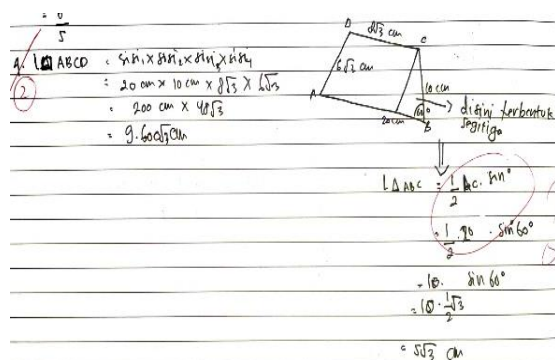 = 6/5
9. L□ ABCD = sisi₁ x sisi₂ x sisi₃ x sisi₄
②
= 20 cm x 10 cm x 8√3 x 6√3
= 200 cm x 48√3
= 9.600√3 cm
D
8√3 cm
C
6√3 cm
10 cm
A
20 cm
60°
B
disini terbentuk
segitiga
L△ ABC = 1/2 . sin°
= 1/2 . 20 . sin 60°
= 10 . sin 60°
= 10 . 1/2 √3
= 5√3 cm